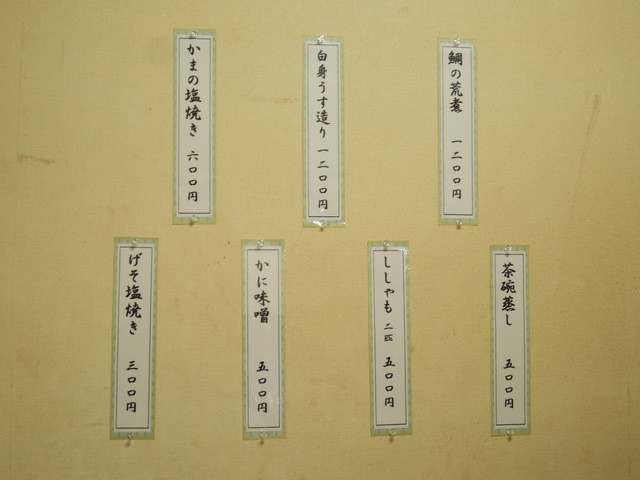 鯛の荒煮 一二〇〇円
白身うす造り 一二〇〇円
かまの塩焼き 六〇〇円
茶碗蒸し 五〇〇円
ししゃも 二匹 五〇〇円
かに味噌 五〇〇円
げそ塩焼き 三〇〇円